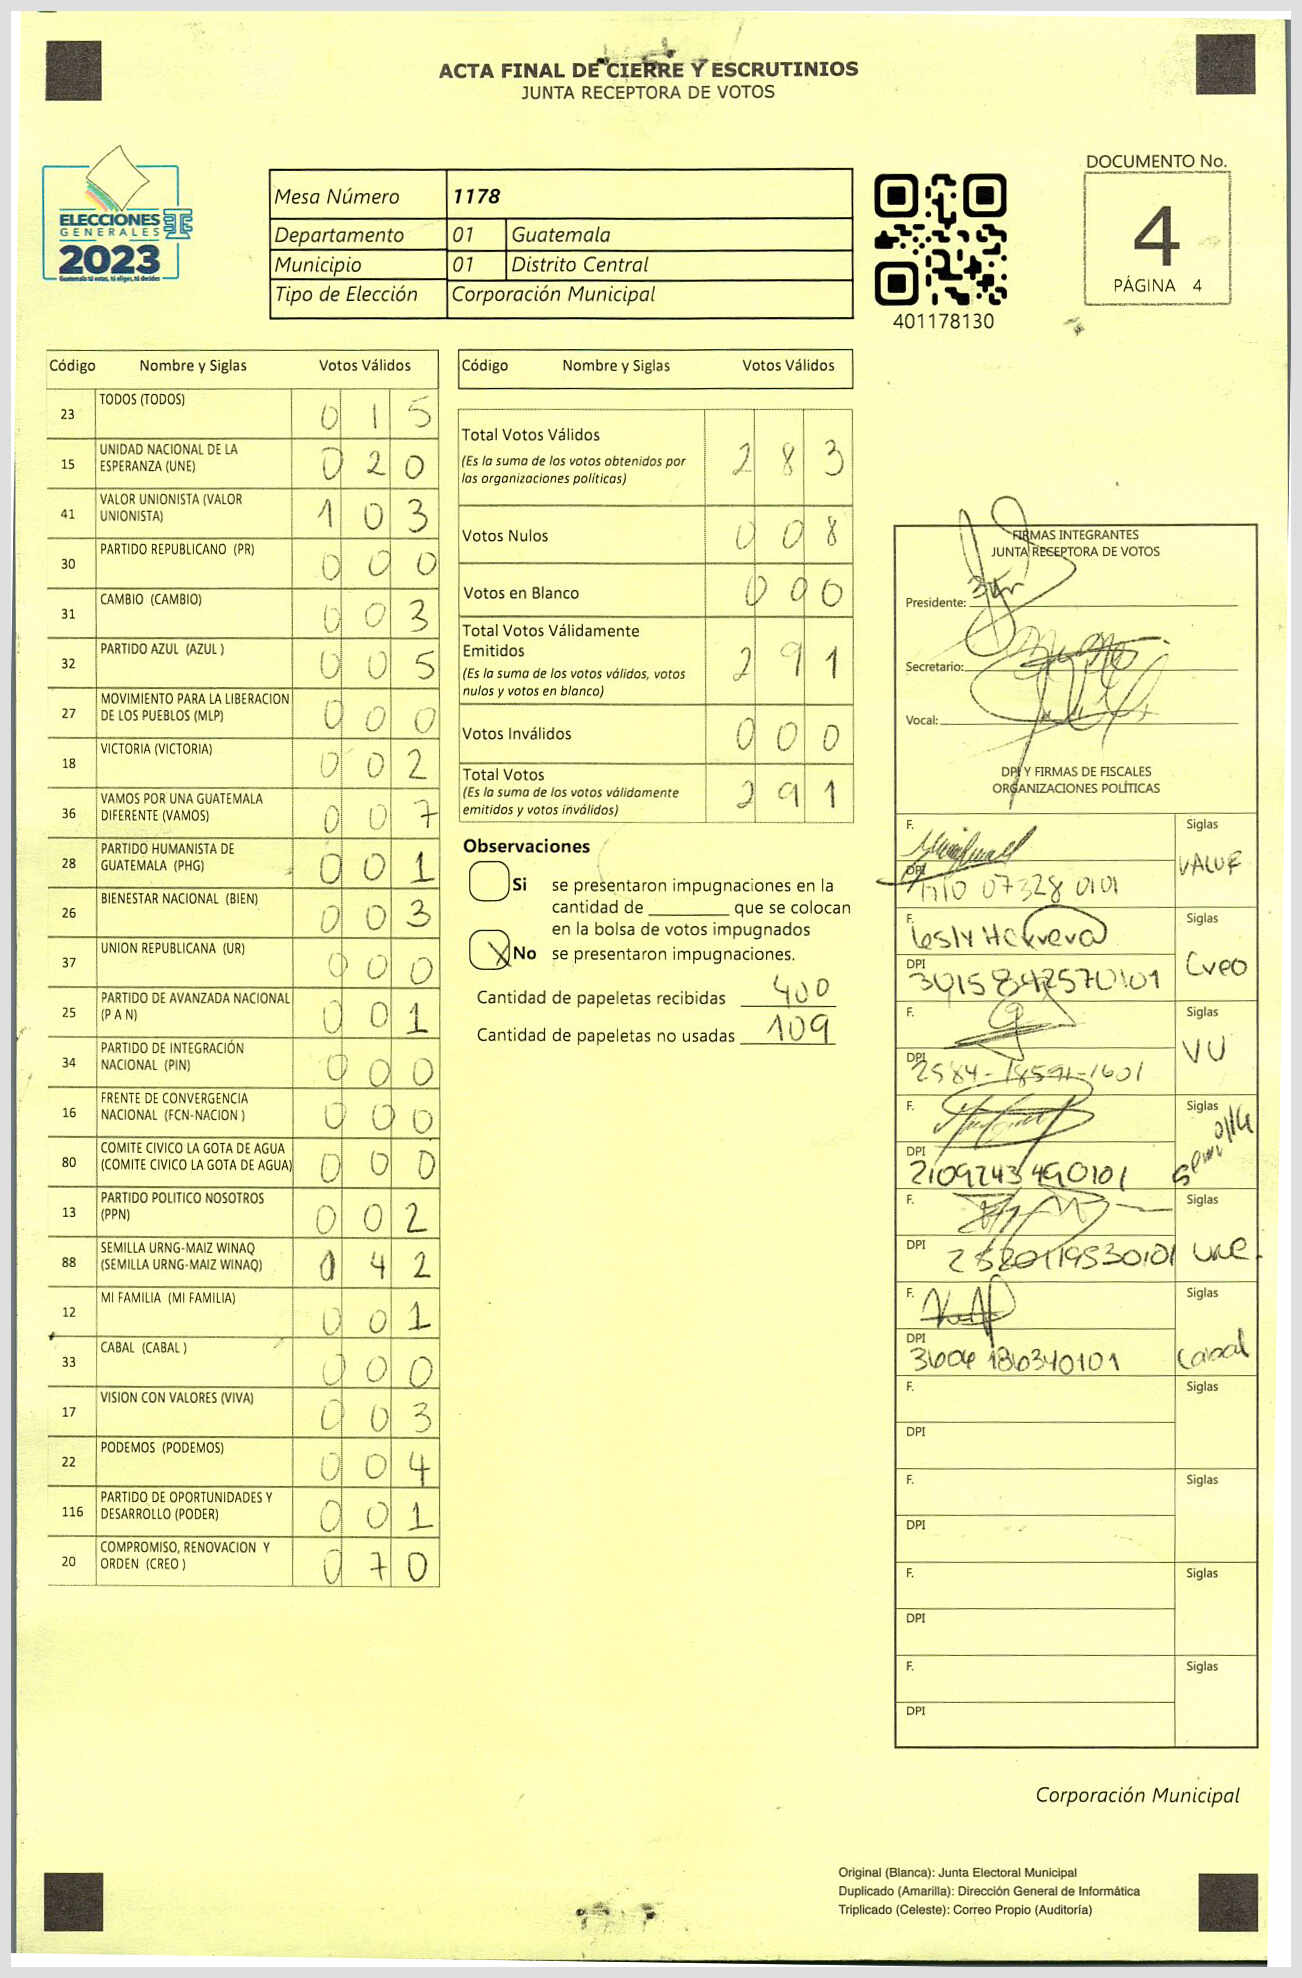 ACTA FINAL DE CIERRE Y ESCRUTINIOS
JUNTA RECEPTORA DE VOTOS
ELECCIONES
GENERALES
2023
Guatemala tú votas, tú eliges, tú decides
Mesa Número 1178
Departamento 01 Guatemala
Municipio 01 Distrito Central
Tipo de Elección Corporación Municipal
401178130
DOCUMENTO No.
4
PÁGINA 4
Código Nombre y Siglas Votos Válidos
23 TODOS (TODOS) 0 1 5
15 UNIDAD NACIONAL DE LA ESPERANZA (UNE) 0 2 0
41 VALOR UNIONISTA (VALOR UNIONISTA) 1 0 3
30 PARTIDO REPUBLICANO (PR) 0 0 0
31 CAMBIO (CAMBIO) 0 0 3
32 PARTIDO AZUL (AZUL ) 0 0 5
27 MOVIMIENTO PARA LA LIBERACION DE LOS PUEBLOS (MLP) 0 0 0
18 VICTORIA (VICTORIA) 0 0 2
36 VAMOS POR UNA GUATEMALA DIFERENTE (VAMOS) 0 0 7
28 PARTIDO HUMANISTA DE GUATEMALA (PHG) 0 0 1
26 BIENESTAR NACIONAL (BIEN) 0 0 3
37 UNION REPUBLICANA (UR) 0 0 0
25 PARTIDO DE AVANZADA NACIONAL (P A N) 0 0 1
34 PARTIDO DE INTEGRACIÓN NACIONAL (PIN) 0 0 0
16 FRENTE DE CONVERGENCIA NACIONAL (FCN-NACION ) 0 0 0
80 COMITE CIVICO LA GOTA DE AGUA (COMITE CIVICO LA GOTA DE AGUA) 0 0 0
13 PARTIDO POLITICO NOSOTROS (PPN) 0 0 2
88 SEMILLA URNG-MAIZ WINAQ (SEMILLA URNG-MAIZ WINAQ) 0 4 2
12 MI FAMILIA (MI FAMILIA) 0 0 1
33 CABAL (CABAL ) 0 0 0
17 VISION CON VALORES (VIVA) 0 0 3
22 PODEMOS (PODEMOS) 0 0 4
116 PARTIDO DE OPORTUNIDADES Y DESARROLLO (PODER) 0 0 1
20 COMPROMISO, RENOVACION Y ORDEN (CREO ) 0 7 0
Código Nombre y Siglas Votos Válidos
Total Votos Válidos 2 8 3
(Es la suma de los votos obtenidos por
las organizaciones políticas)
Votos Nulos 0 0 8
Votos en Blanco 0 0 0
Total Votos Válidamente
Emitidos 2 9 1
(Es la suma de los votos válidos, votos
nulos y votos en blanco)
Votos Inválidos 0 0 0
Total Votos 2 9 1
(Es la suma de los votos válidamente
emitidos y votos inválidos)
Observaciones
Si se presentaron impugnaciones en la
cantidad de ________ que se colocan
en la bolsa de votos impugnados
X No se presentaron impugnaciones.
Cantidad de papeletas recibidas 400
Cantidad de papeletas no usadas 109
FIRMAS INTEGRANTES
JUNTA RECEPTORA DE VOTOS
Presidente:
Secretario:
Vocal:
DPI Y FIRMAS DE FISCALES
ORGANIZACIONES POLÍTICAS
F. Siglas
DPI 07328 0101 VALUF
F. Lesly Herrera Siglas
DPI 3015842570101 Creo
F. Siglas
DPI 2584-18591-1601 VU
F. Siglas
DPI 2109243490101 Semilla
F. Siglas
DPI 2520119530101 une
F. Siglas
DPI 3604 186340101 Cabal
F. Siglas
DPI
F. Siglas
DPI
F. Siglas
DPI
F. Siglas
DPI
Corporación Municipal
Original (Blanca): Junta Electoral Municipal
Duplicado (Amarilla): Dirección General de Informática
Triplicado (Celeste): Correo Propio (Auditoría)